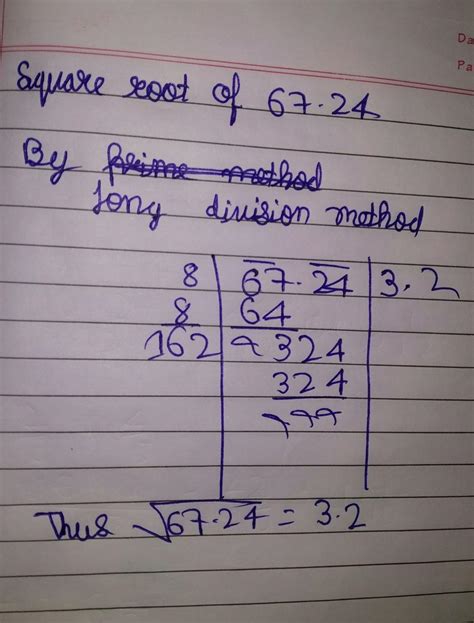 Da
Pa
Square root of 67.24
By prime method
long division method
8 | 67.24 | 3.2
8 | 64
162 | 324
324
Thus √67.24 = 3.2